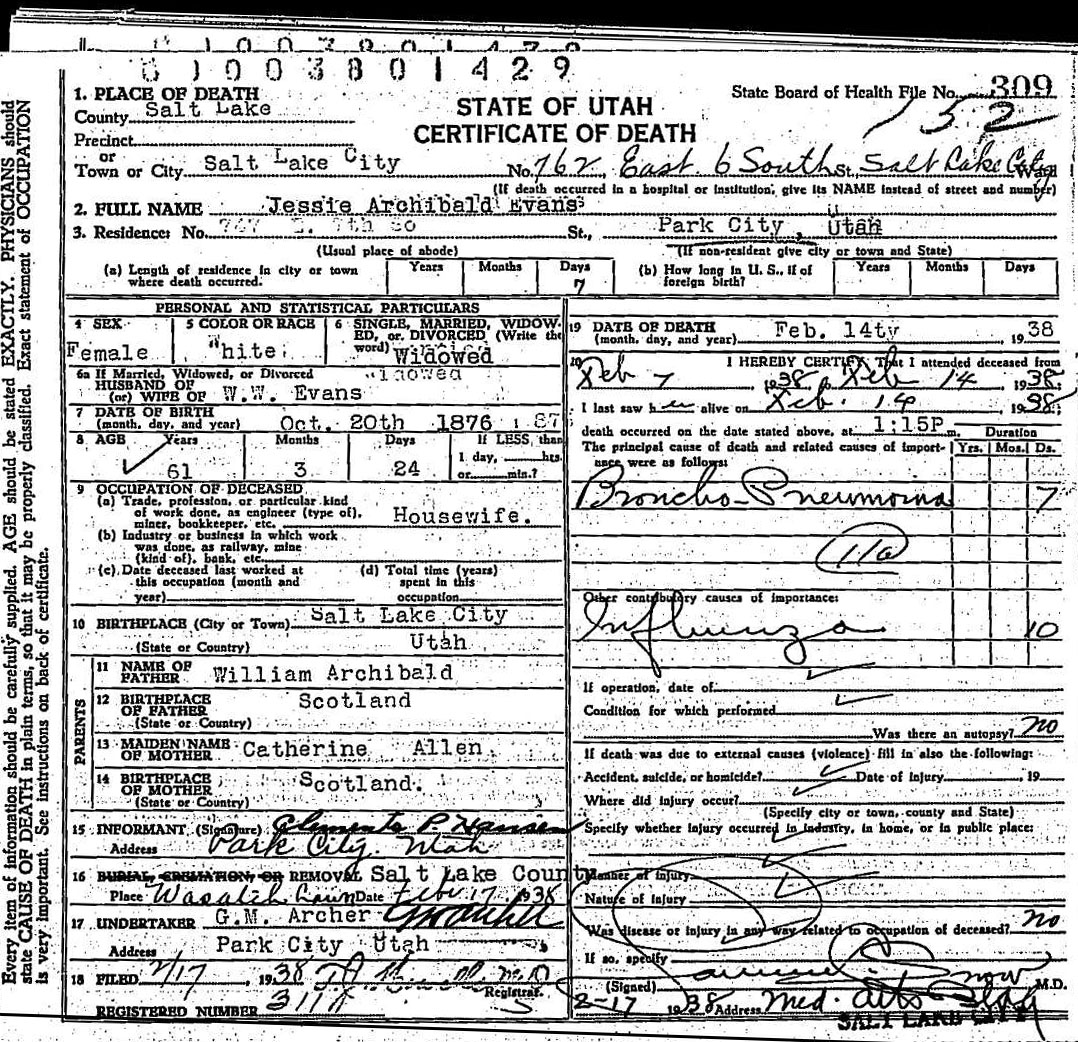 6 1 0 0 3 8 0 1 4 2 9
1. PLACE OF DEATH
County Salt Lake
STATE OF UTAH
CERTIFICATE OF DEATH
State Board of Health File No. 309
152
Precinct
or
Town or City Salt Lake City No. 762 East 6 South St. Salt Lake City Ward
(If death occurred in a hospital or institution, give its NAME instead of street and number)
2. FULL NAME Jessie Archibald Evans
3. Residence: No. St., Park City, Utah
(Usual place of abode) (If non-resident give city or town and State)
(a) Length of residence in city or town where death occurred. Years Months Days 7 (b) How long in U. S., if of foreign birth? Years Months Days
PERSONAL AND STATISTICAL PARTICULARS
4 SEX Female
5 COLOR OR RACE White
6 SINGLE, MARRIED, WIDOWED, or DIVORCED (Write the word) Widowed
6a If Married, Widowed, or Divorced Widowed
HUSBAND OF
(or) WIFE OF W.W. Evans
7 DATE OF BIRTH
(month, day, and year) Oct. 20th 1876 187
8 AGE Years 61 Months 3 Days 24 If LESS than 1 day, hrs. or min.?
9 OCCUPATION OF DECEASED
(a) Trade, profession, or particular kind
of work done, as engineer (type of),
miner, bookkeeper, etc. Housewife.
(b) Industry or business in which work
was done, as railway, mine
(kind of), bank, etc.
(c) Date deceased last worked at
this occupation (month and
year)
(d) Total time (years)
spent in this
occupation
10 BIRTHPLACE (City or Town) Salt Lake City
(State or Country) Utah
PARENTS
11 NAME OF
FATHER William Archibald
12 BIRTHPLACE
OF FATHER Scotland
(State or Country)
13 MAIDEN NAME
OF MOTHER Catherine Allen
14 BIRTHPLACE
OF MOTHER Scotland.
(State or Country)
15 INFORMANT (Signature) P. Hansen
Address Park City. Utah
16 BURIAL, CREMATION, OR REMOVAL Salt Lake County
Place Wasatch Lawn Date Feb. 17 1938
17 UNDERTAKER G.M. Archer GM Archer
Address Park City Utah
18 FILED 2/17, 1938
Registrar.
REGISTERED NUMBER
19 DATE OF DEATH
(month, day, and year) Feb. 14ty 1938
20 I HEREBY CERTIFY, That I attended deceased from
Feb 7 1938, to Feb 14 1938
I last saw her alive on Feb. 14 1938,
death occurred on the date stated above, at 1:15P m. Duration
The principal cause of death and related causes of importance were as follows: Yrs. Mos. Ds.
Broncho-Pneumonia 7
11a
Other contributory causes of importance:
Influenza 10
If operation, date of
Condition for which performed
Was there an autopsy? no
If death was due to external causes (violence) fill in also the following:
Accident, suicide, or homicide? Date of injury 19
Where did injury occur?
(Specify city or town, county and State)
Specify whether injury occurred in industry, in home, or in public place:
Manner of injury
Nature of injury
Was disease or injury in any way related to occupation of deceased? no
If so, specify
(Signed) Snow M.D.
2-17 1938 Address Med. Arts Bldg
SALT LAKE CITY
Every item of information should be carefully supplied. AGE should be stated EXACTLY. PHYSICIANS should
state CAUSE OF DEATH in plain terms, so that it may be properly classified. Exact statement of OCCUPATION
is very important. See instructions on back of certificate.